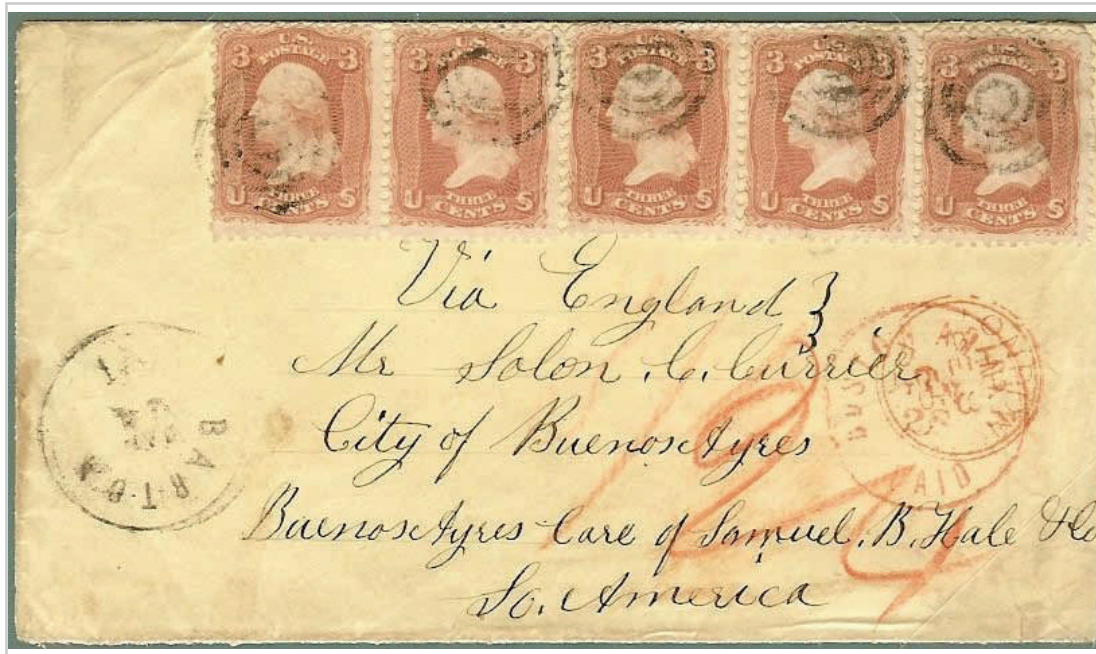 U.S. POSTAGE 3 3 U THREE CENTS S
U.S. POSTAGE 3 3 U THREE CENTS S
U.S. POSTAGE 3 3 U THREE CENTS S
U.S. POSTAGE 3 3 U THREE CENTS S
U.S. POSTAGE 3 3 U THREE CENTS S
Via England }
Mr Solon. C. Currier
City of Buenos Ayres
Buenos Ayres Care of Samuel. B. Hale & Co
So. America
BARTON
VT
LONDON
PAID